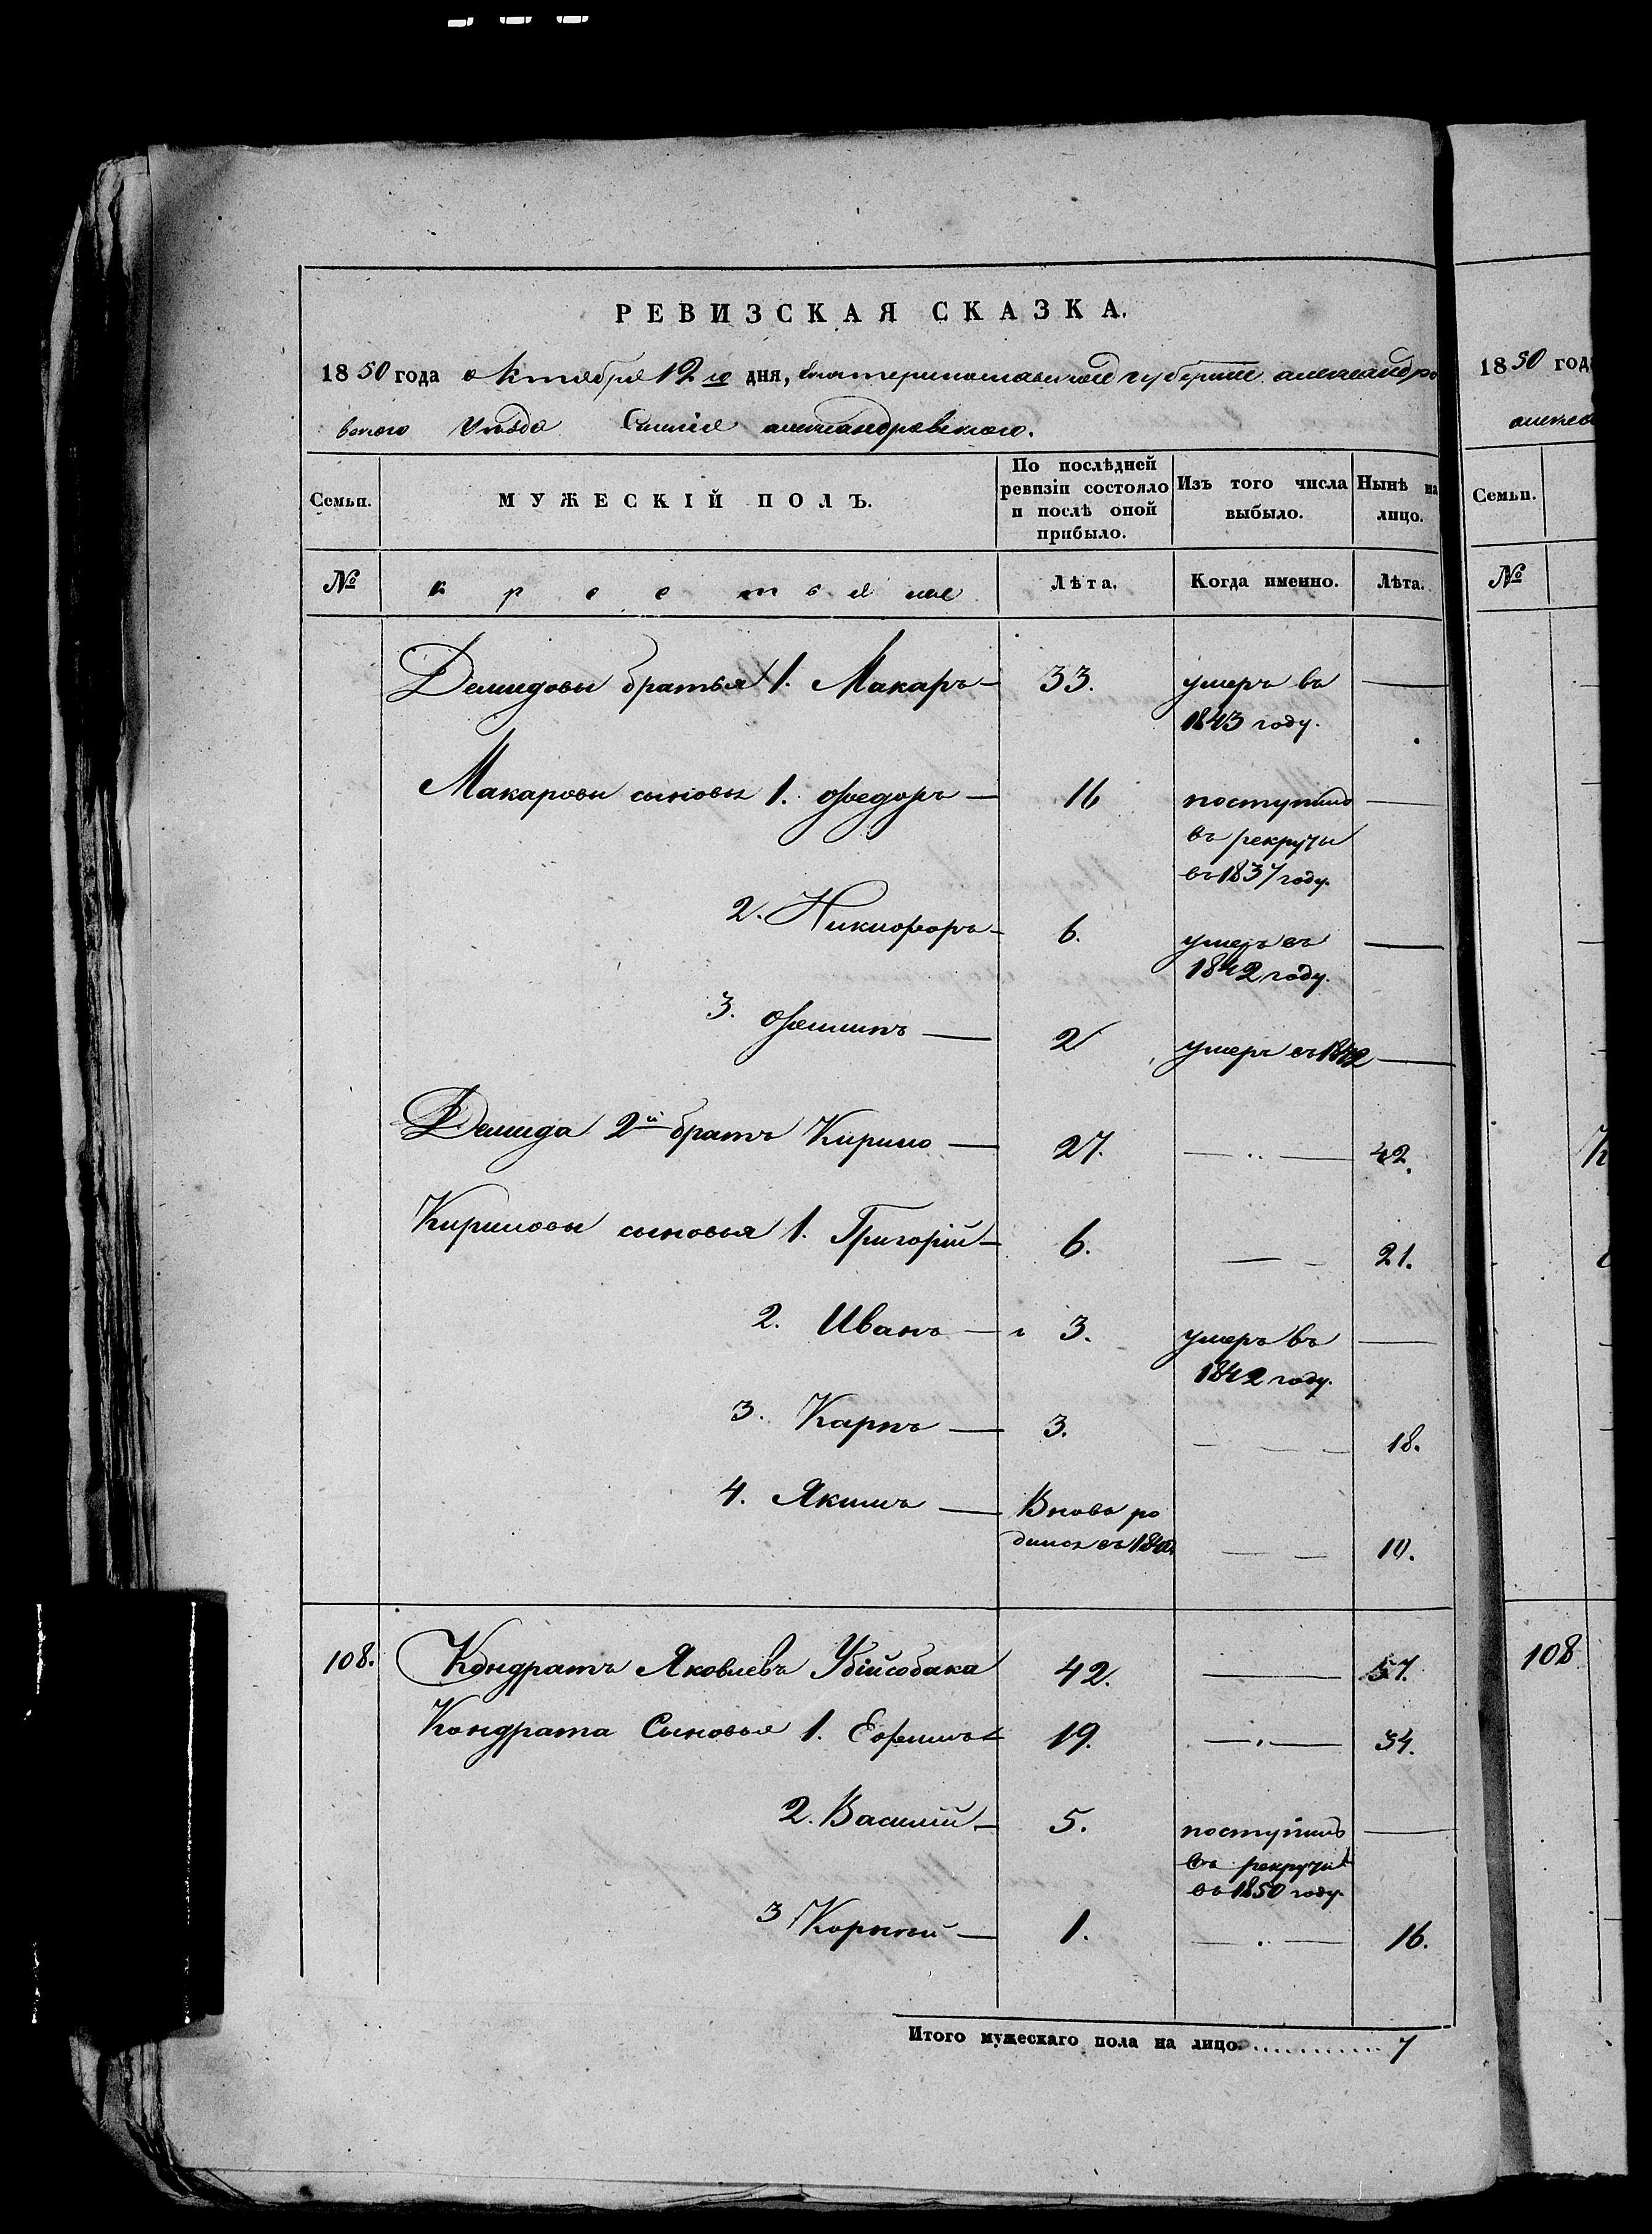 РЕВИЗСКАЯ СКАЗКА.
1850 года октября 12го дня, Екатеринославской губернии александро
вского уезда Селения александровского.
Семьи. МУЖЕСКІЙ ПОЛЪ. По послѣдней ревизіи состояло и послѣ оной прибыло. Изъ того числа выбыло. Нынѣ на лицо.
№ крестьяне Лѣта. Когда именно. Лѣта.
Демидовы братья 1. Макаръ — 33. умеръ въ —
1843 году.
Макаровы сыновья 1. Федоръ — 16 поступилъ —
въ рекруты
въ 1837 году.
2. Никифоръ — 6. умеръ въ —
1842 году.
3. Фёмины — 2 умеръ въ 1842 —
Демида 2й братъ Кирило — 27. — 42.
Кириловы сыновья 1. Григорій — 6. — 21.
2. Иванъ — 3. умеръ въ —
1842 году.
3. Карпъ — 3. — 18.
4. Якимъ — Вновь ро
дился въ 1840 — 10.
108. Кондратъ Яковлевъ Убійсобака 42. — 57.
Кондрата Сыновья 1. Ефимъ 19. — 34.
2. Василій — 5. поступилъ —
въ рекруты
въ 1850 году.
3 Корній — 1. — 16.
Итого мужескаго пола на лицо. 7
1850 год
Семьи.
№
108